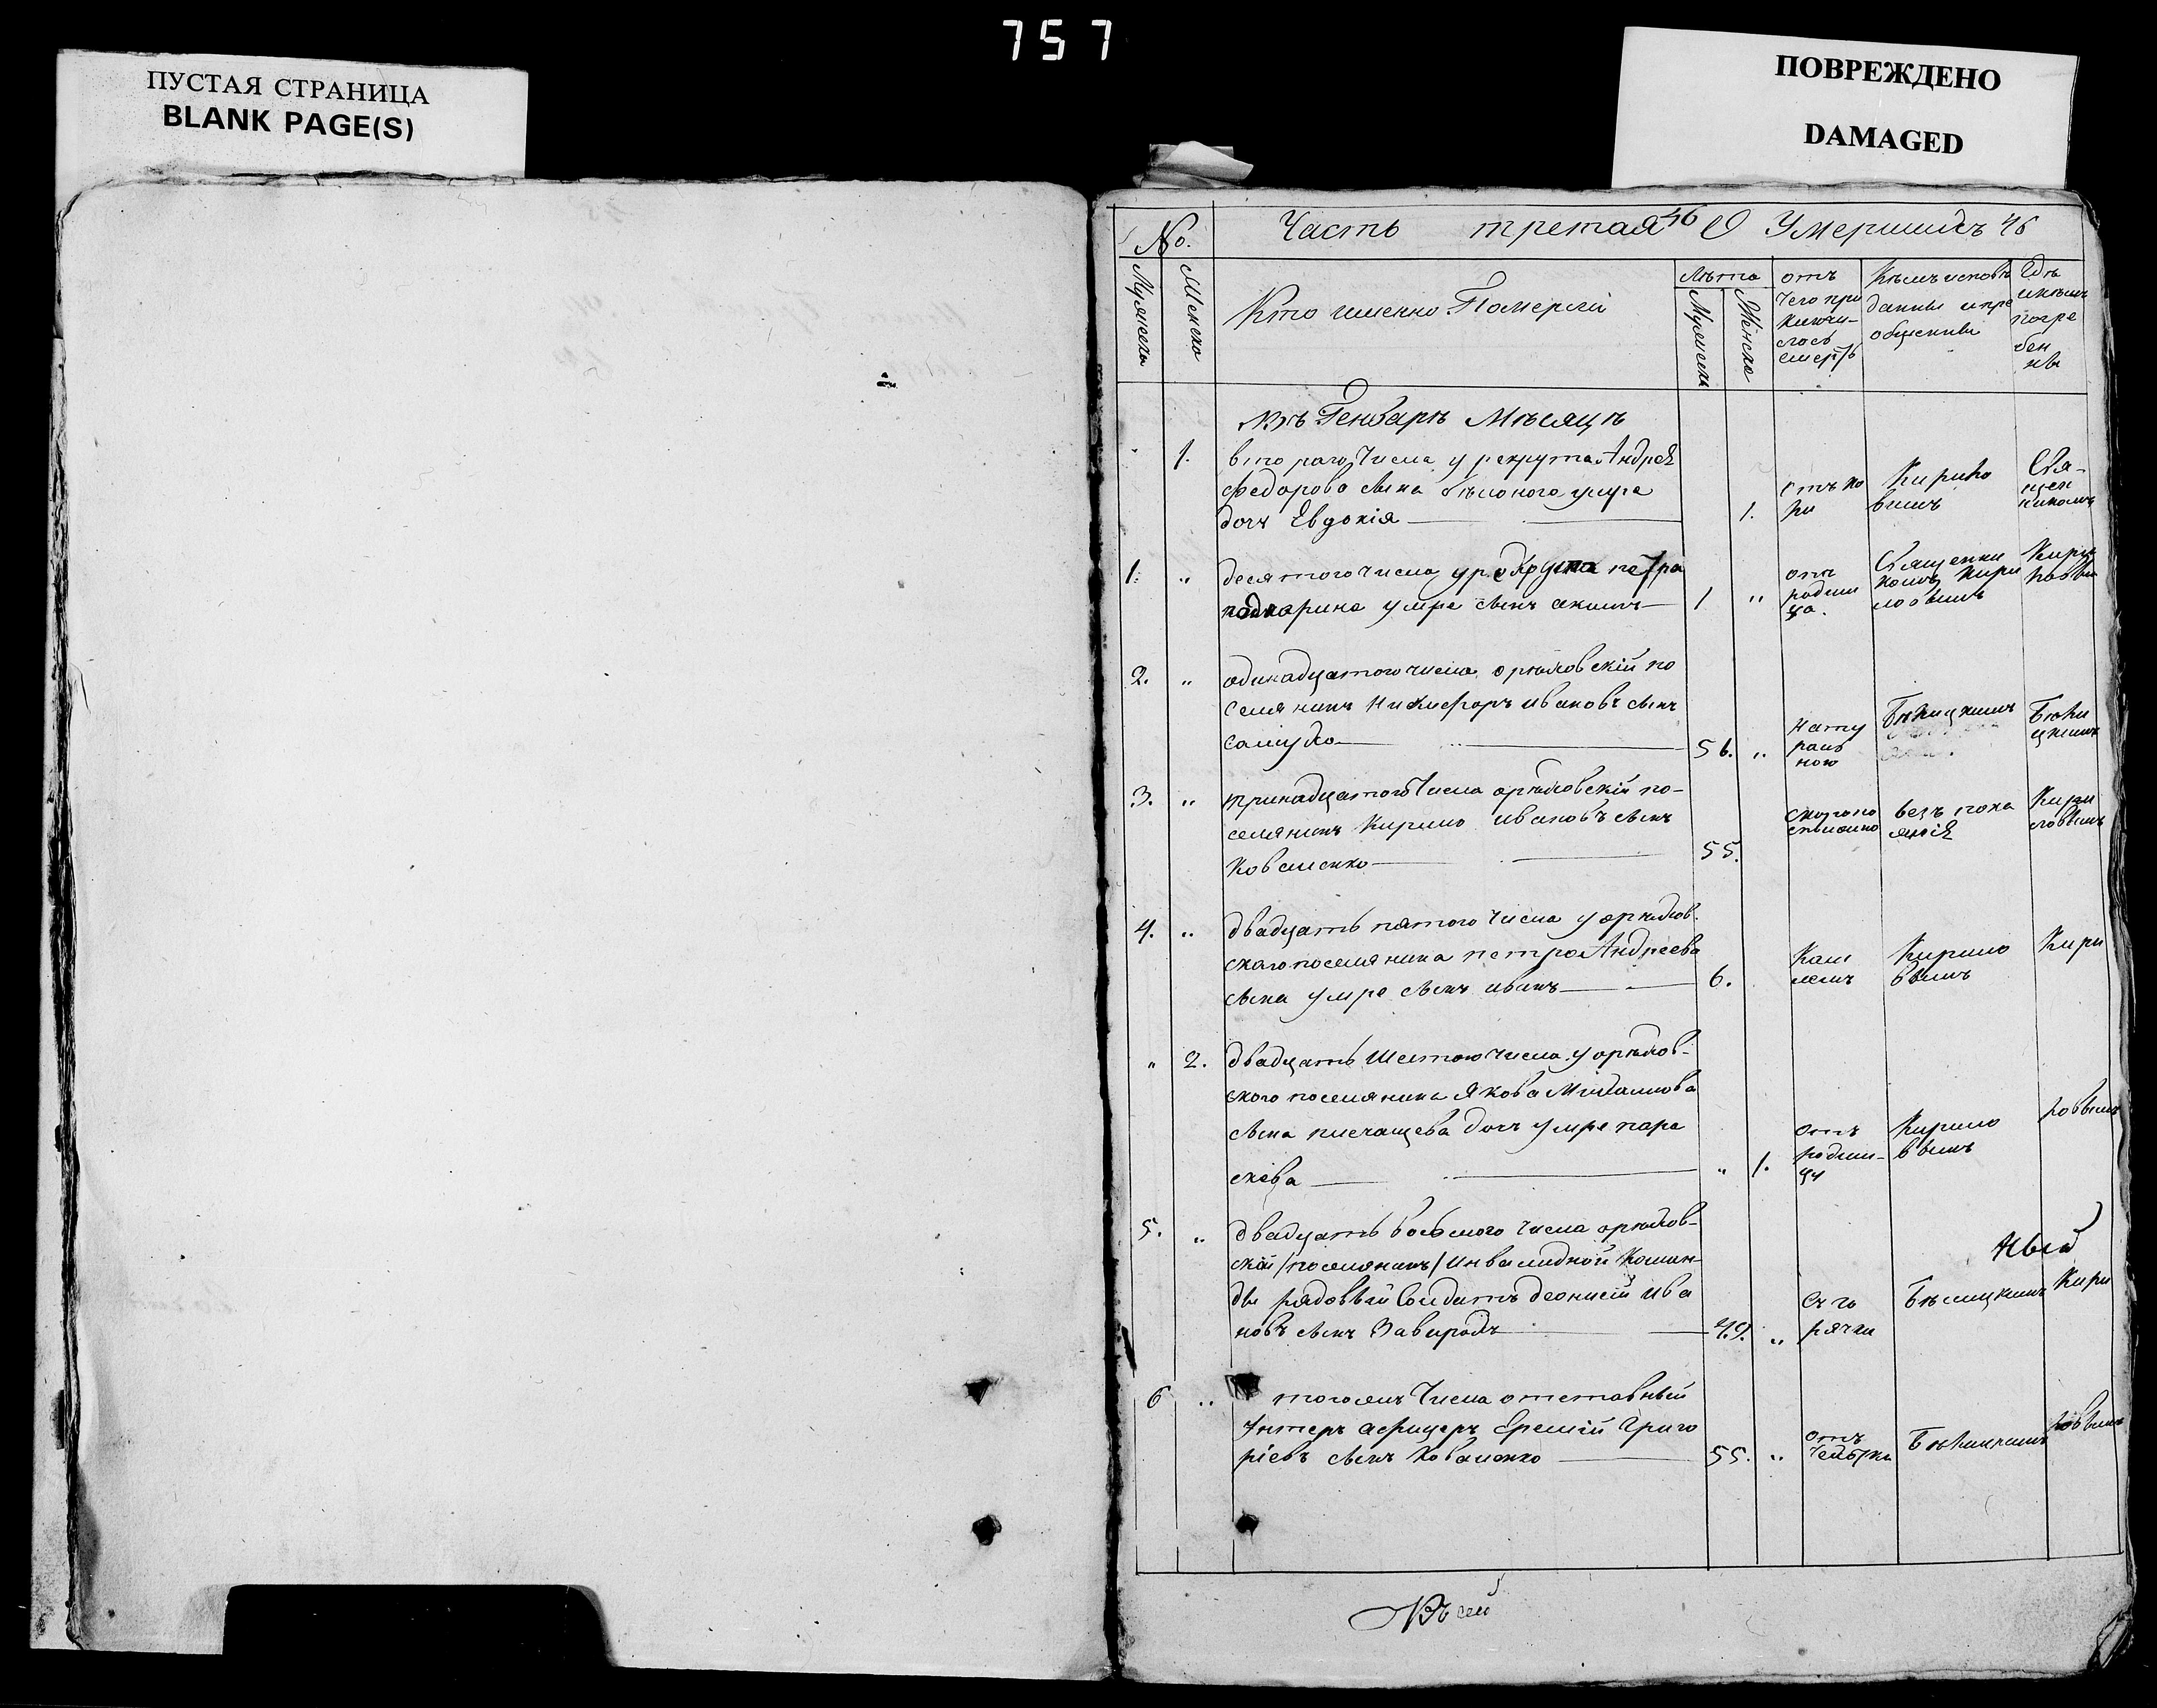 757
ПУСТАЯ СТРАНИЦА
BLANK PAGE(S)
ПОВРЕЖДЕНО
DAMAGED
No. Часть третая 46 О Умершихъ 46
Мужеска Женска
Кто именно Померлй
Лѣта
Мужеска Женска
отъ
чего при
ключи-
лось
смерть
Кѣмъ исповѣ
даны и прі
общены
Гдѣ
и кѣмъ
погре
бен
ны
Въ Генварѣ Мѣсяцѣ
1. втораго Числа у рекрута Андрея
Федорова сына умре
дочь Евдокія
1.
отъ ко
ри
Кирило
вымъ
Свя-
щен
никомъ
1. " десятого числа у рекрута петра
умре сынъ акимъ 1 "
отъ
родим
ца.
Священни
комъ Кири
ловымъ
2. " одинадцатого числа орѣховскій по
селянинъ Никифоръ ивановъ сынъ
56. "
нату
раль
ною
3. " тринадцатого Числа орѣховскій по-
селянинъ Кирило ивановъ сынъ
Коваленко 55.
скоропо
стижно
безъ пока
янія
Кири
ловымъ
4. " двадцать пятого числа у орѣхов-
скаго поселянина петра Андреева
сына умре сынъ иванъ 6.
каш
лемъ
Кирило
вымъ
Кири
" 2. двадцать шестого числа у орѣхов-
ского поселянина Якова Михайлова
сына дочь умре пара
скева " 1.
отъ
родим-
цы
Кирило
вымъ
ловымъ
5. " двадцать восьмого числа орѣхов-
скій /поселянинъ/ инвалидной Коман-
ды рядовый Солдатъ деонисій ива
новъ сынъ 49. "
ный
съ го
рячки
Кири
6 " того жъ Числа отставный
Унтеръ афицеръ Еремій Григо
ріевъ сынъ Коваленко 55. "
отъ
ловымъ
Въ сей